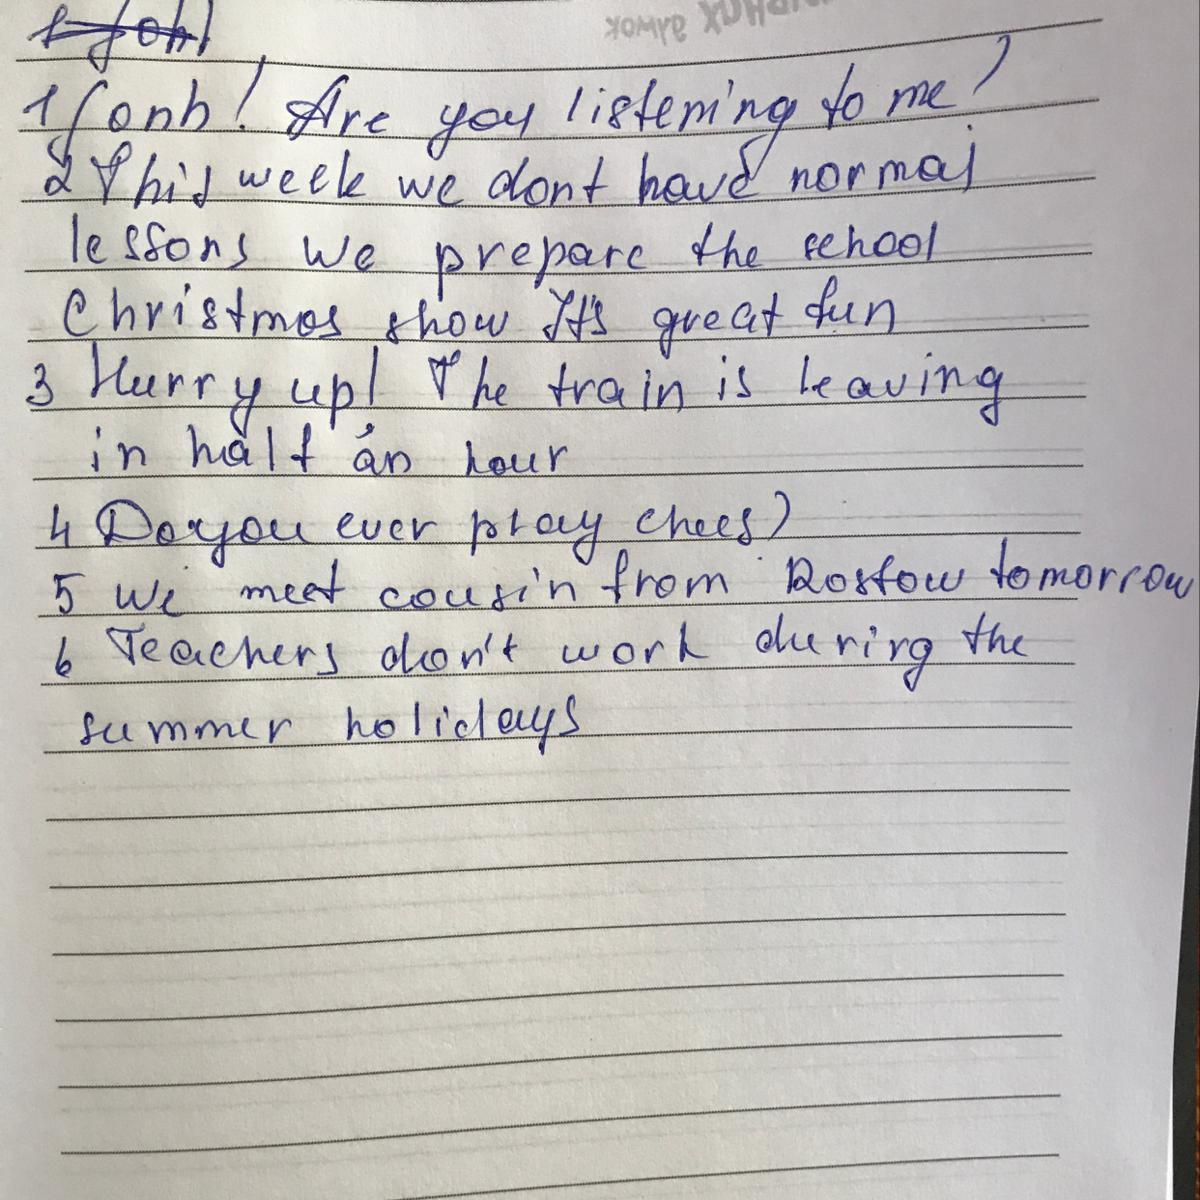 1 Jonh! Are you listening to me?
2 This week we dont have normal
lessons we prepare the school
Christmas show It's great fun
3 Hurry up! The train is leaving
in half an hour
4 Do you ever play chees?
5 We meet cousin from Rostow tomorrow
6 Teachers don't work during the
summer holidays